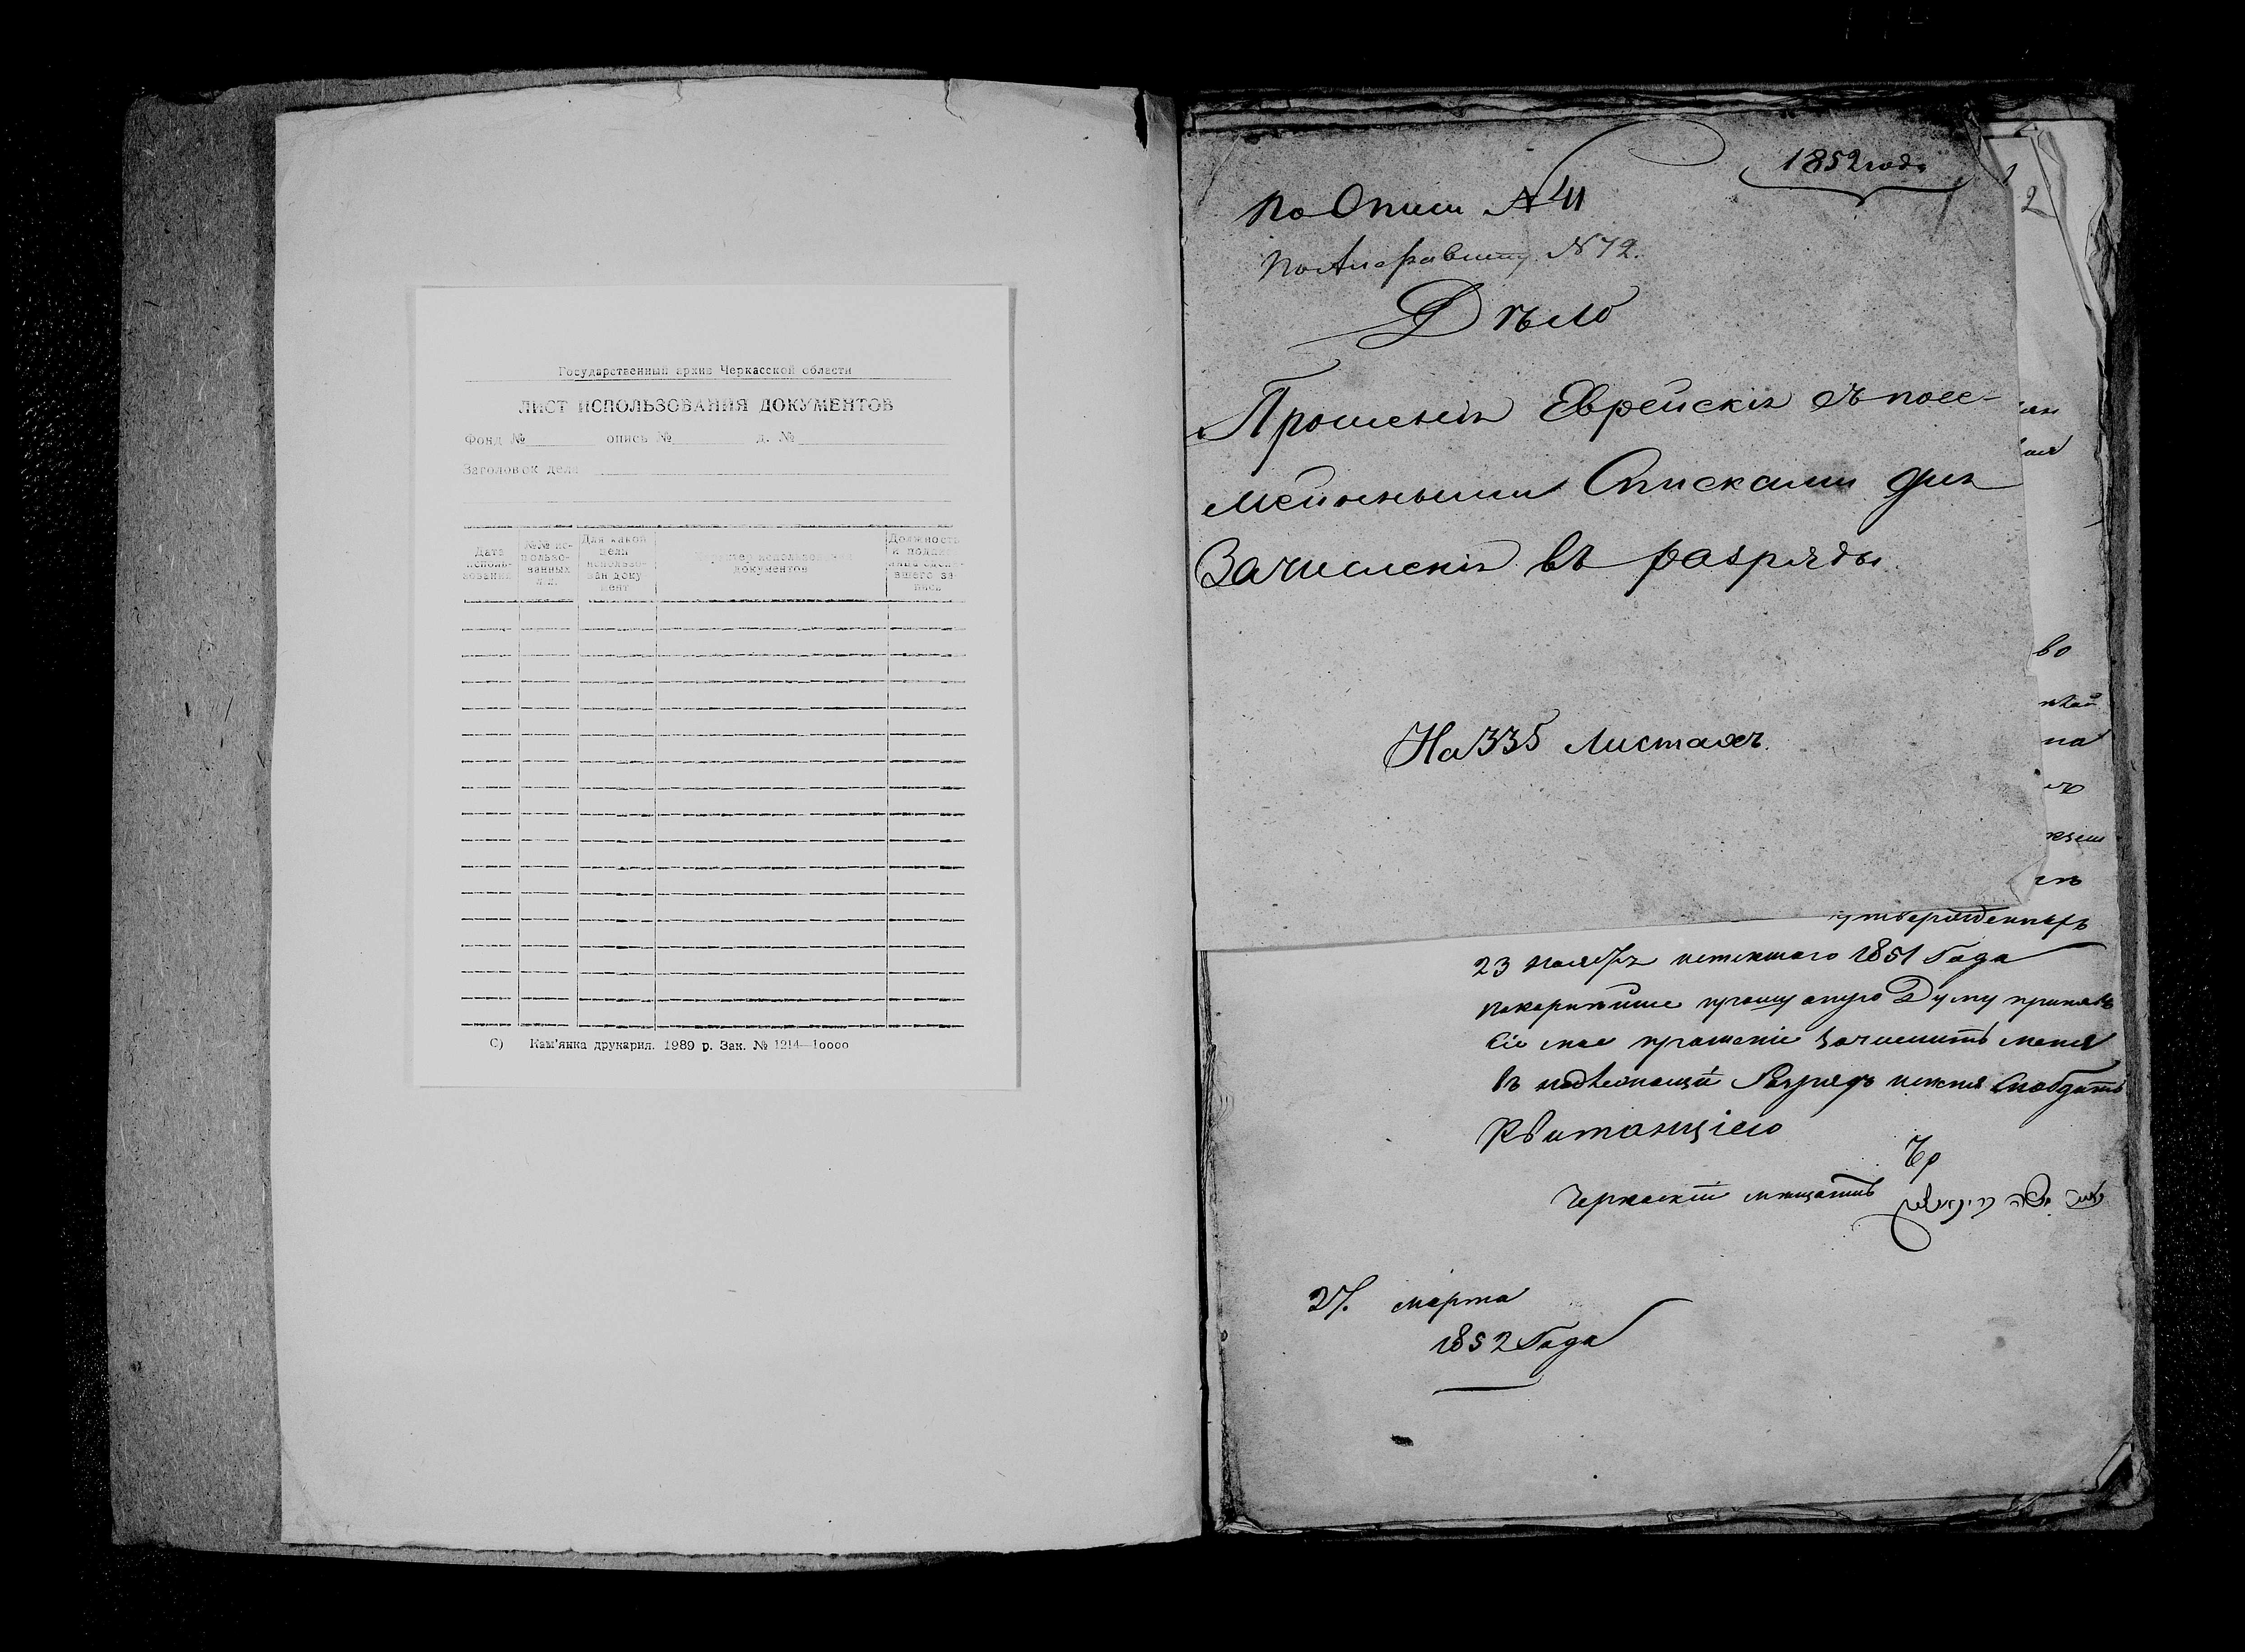 Государственный архив Черкасской области
ЛИСТ ИСПОЛЬЗОВАНИЯ ДОКУМЕНТОВ
Фонд № опись № д. №
Заголовок дела
Дата исполь-зования
№№ ис-пользо-ванных л.л.
Для какой цели использо-ван доку мент
Характер использования документов
Должность и подпись лица сделав-шего за пись
С) Кам'янка друкарня. 1989 р. Зак. № 1214—10000
1852 года
1
2
По Описи № 41
По Алфавиту № 72.
Дѣло
Прошенія Еврейскія съ посе-
мейными Списками для
Зачисленія въ разряды
На 335 Листахъ.
во
на
утвержденныхъ
23 ноября истекшаго 1851 Года
покорнѣйше прошу оную Думу принявъ
сіе мое прошеніе зачислить меня
въ надлежащій Разрядъ и меня снабдить
Квитанціею
Черкаскій мещанинъ
27. марта
1852 Года